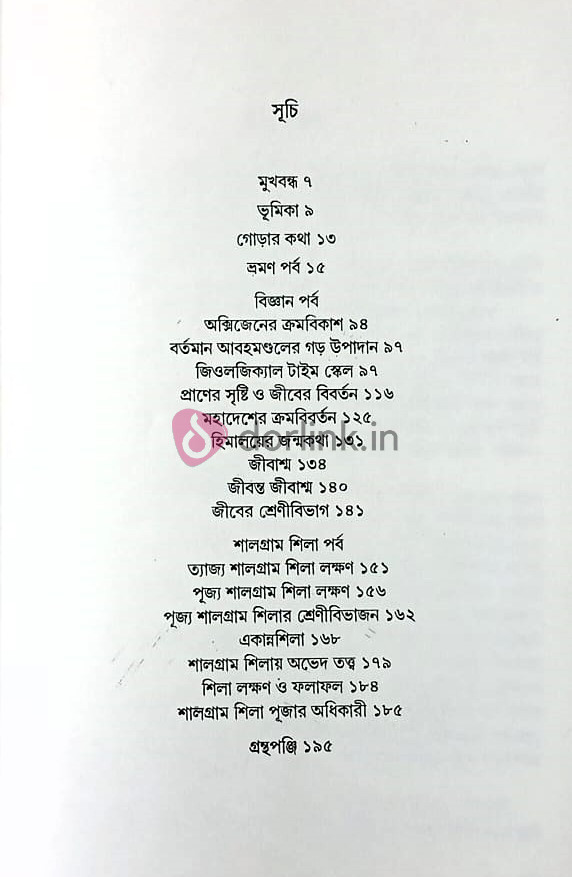 সূচি
মুখবন্ধ ৭
ভূমিকা ৯
গোড়ার কথা ১৩
ভ্রমণ পর্ব ১৫
বিজ্ঞান পর্ব
অক্সিজেনের ক্রমবিকাশ ৯৪
বর্তমান আবহমণ্ডলের গড় উপাদান ৯৭
জিওলজিক্যাল টাইম স্কেল ৯৭
প্রাণের সৃষ্টি ও জীবের বিবর্তন ১১৬
মহাদেশের ক্রমবিবর্তন ১২৫
dorlink.in
হিমালয়ের জন্মকথা ১৩১
জীবাশ্ম ১৩৪
জীবন্ত জীবাশ্ম ১৪০
জীবের শ্রেণীবিভাগ ১৪১
শালগ্রাম শিলা পর্ব
ত্যাজ্য শালগ্রাম শিলা লক্ষণ ১৫১
পূজ্য শালগ্রাম শিলা লক্ষণ ১৫৬
পূজ্য শালগ্রাম শিলার শ্রেণীবিভাজন ১৬২
একান্নশিলা ১৬৮
শালগ্রাম শিলায় অভেদ তত্ত্ব ১৭৯
শিলা লক্ষণ ও ফলাফল ১৮৪
শালগ্রাম শিলা পূজার অধিকারী ১৮৫
গ্রন্থপঞ্জি ১৯৫